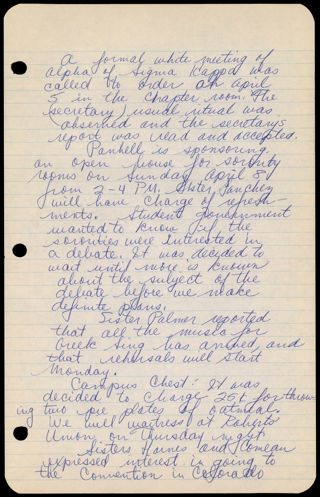 A formal white meeting of
Alpha of Sigma Kappa was
called to order on April
5 in the chapter room. The
secretary usual ritual was
observed and the secretarys
report was read and accepted.
Panhell is sponsoring
an open house for sorority
rooms on Sunday, April 8
from 2-4 P.M. Sister Sanchez
will have charge of refresh-
ments. Student government
wanted to know if the
sororities were interested in
a debate. It was decided to
wait until more is known
about the subject of the
debate before we make
definite plans.
Sister Palmer reported
that all the music for
Greek Sing has arrived, and
that rehersals will start
Monday.
Campus Chest: It was
decided to charge 25¢ for throw-
ing two pie plates of oatmeal.
We will waitress at Roberts
Union on Thursday night.
Sisters and Comeau
expressed interest in going to
the Convention in Colorado